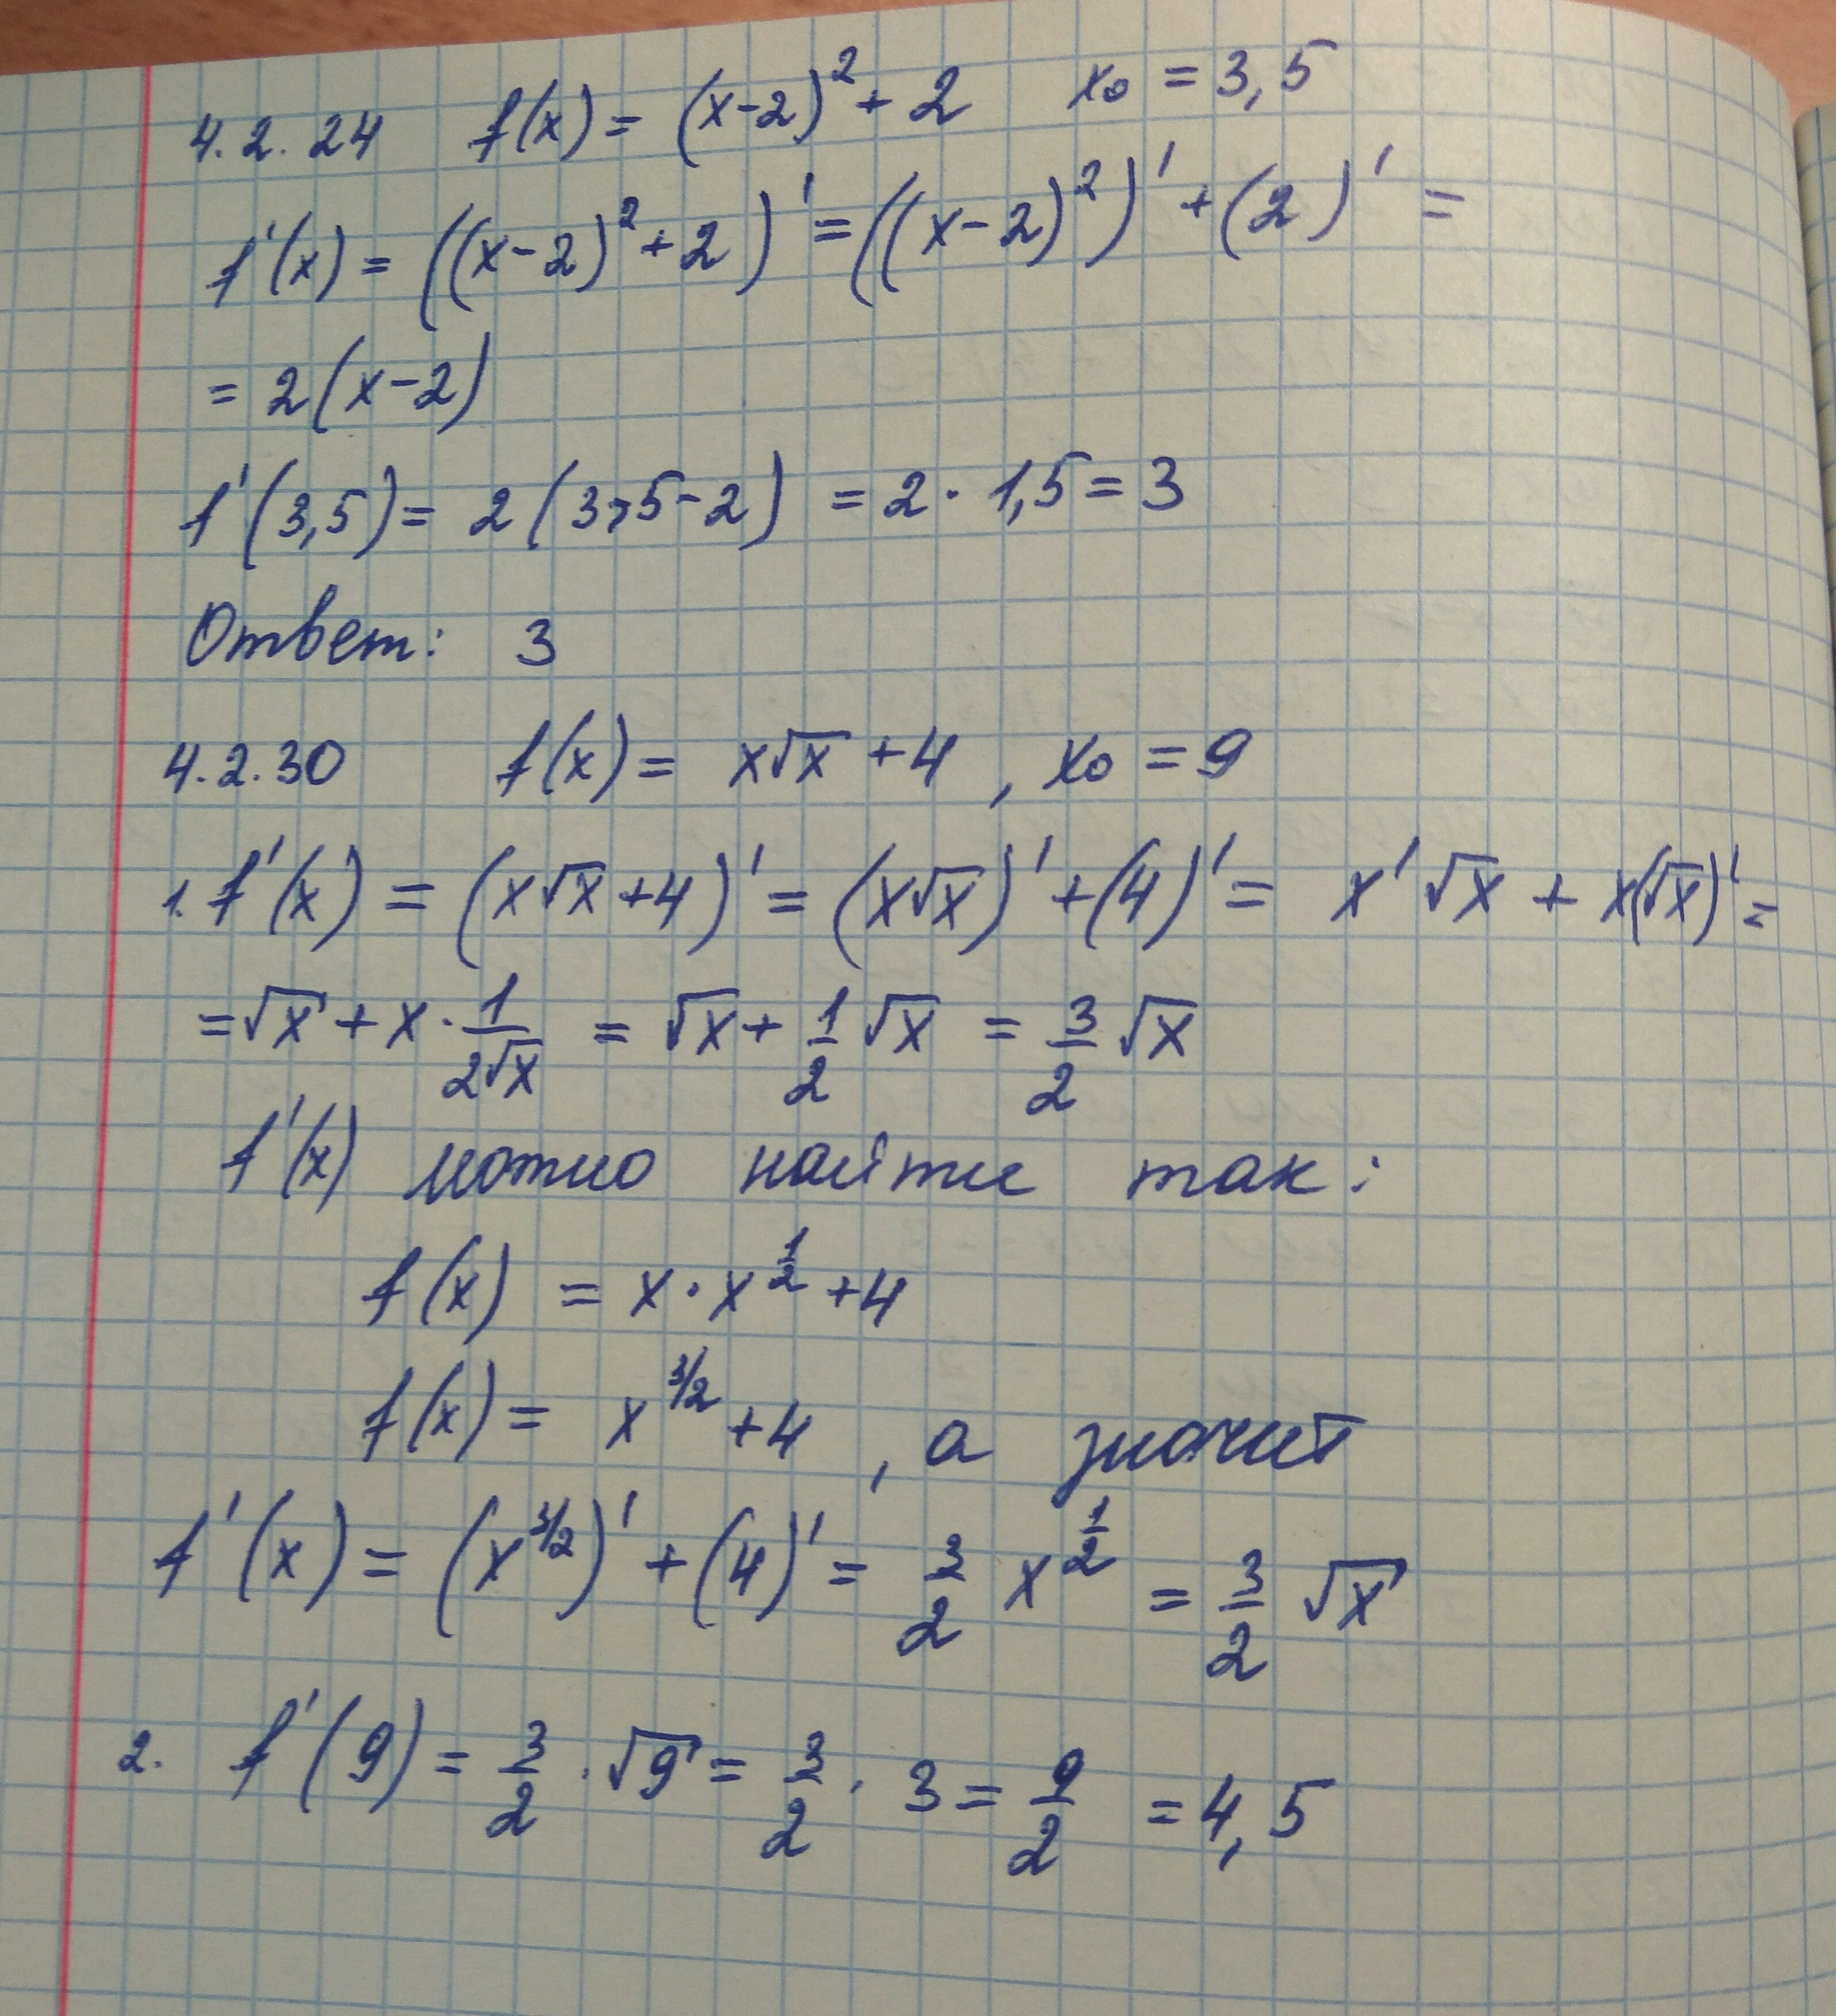 4.2.24 f(x) = (x-2)² + 2 x₀ = 3,5
f'(x) = ((x-2)² + 2)' = ((x-2)²)' + (2)' =
= 2(x-2)
f'(3,5) = 2(3,5-2) = 2 · 1,5 = 3
Ответ: 3
4.2.30 f(x) = x√x + 4 , x₀ = 9
1. f'(x) = (x√x + 4)' = (x√x)' + (4)' = x'√x + x(√x)' =
= √x + x · 1/(2√x) = √x + 1/2 √x = 3/2 √x
f'(x) можно найти так:
f(x) = x · x^(1/2) + 4
f(x) = x^(3/2) + 4 , а значит
f'(x) = (x^(3/2))' + (4)' = 3/2 x^(1/2) = 3/2 √x
2. f'(9) = 3/2 · √9 = 3/2 · 3 = 9/2 = 4,5